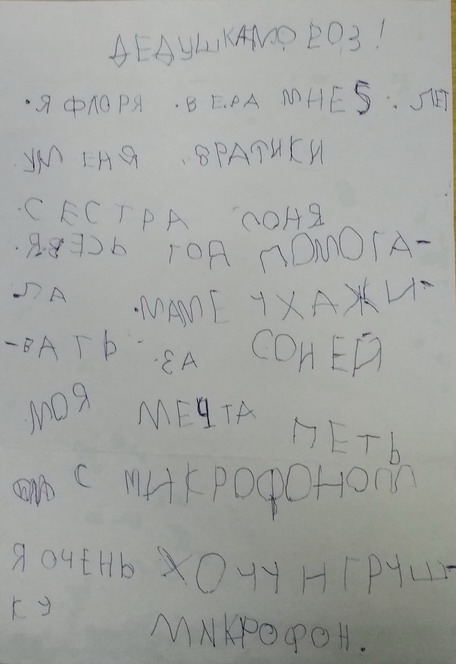 ДЕДУШКАМОРОЗ!
Я ФЛОРЯ ВЕРА МНЕ 5 ЛЕТ
УМЕНЯ БРАТИКИ
СЕСТРА СОНЯ
Я ВЕСЬ ГОД ПОМОГА-
ЛА МАМЕ УХАЖИ-
-ВАТЬ ЗА СОНЕЙ
МОЯ МЕЧТА ПЕТЬ
С МИКРОФОНОМ
Я ОЧЕНЬ ХОЧУ ИГРУШ-
КУ
МИКРОФОН.